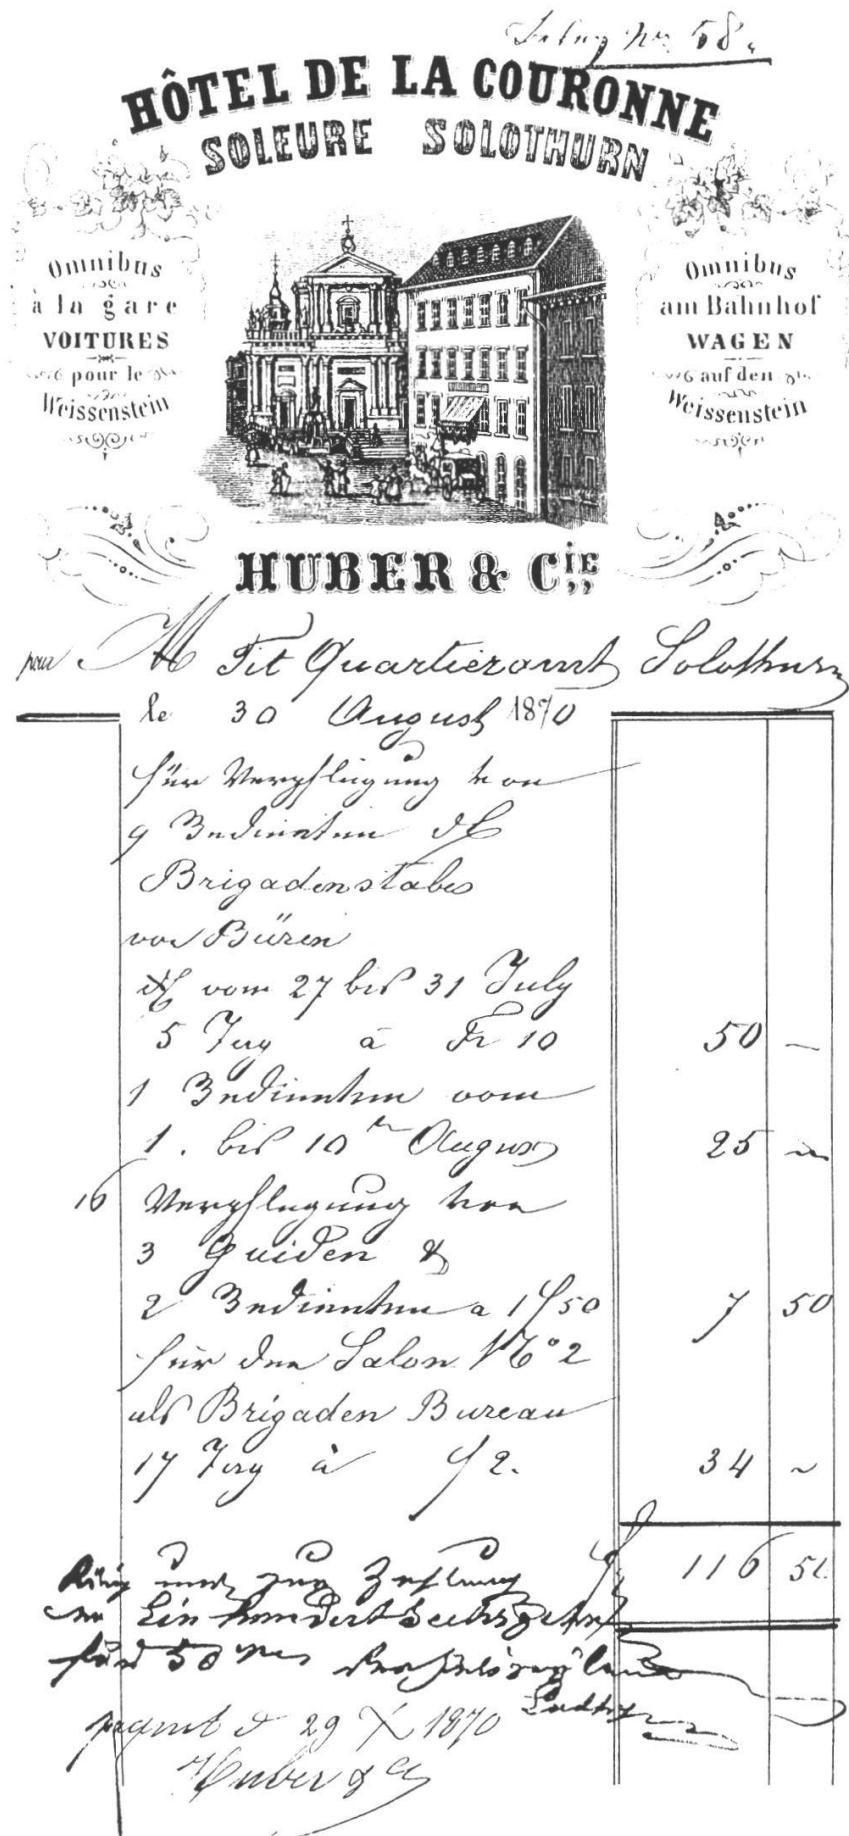 No 58.
HÔTEL DE LA COURONNE
SOLEURE SOLOTHURN
Omnibus
à la gare
VOITURES
pour le
Weissenstein
Omnibus
am Bahnhof
WAGEN
auf den
Weissenstein
HUBER & CIE
pour M Tit Quartieramt Solothurn
le 30 August 1870
für Verpflegung von
9 Bedienten
Brigadenstabes
von Büren
vom 27 bis 31 July
5 Tag à Fr 10 50 –
1 Bedienten vom
1. bis 10 August 25 –
16 Verpflegung von
3 Guiden &
2 Bedienten a 1 f 50 7 50
für den Salon No 2
als Brigaden Bureau
17 Tag à f 2. 34 ~
116 50
zur Zahlung
Ein hundert sechszehn
50
29 X 1870
Huber & Cie